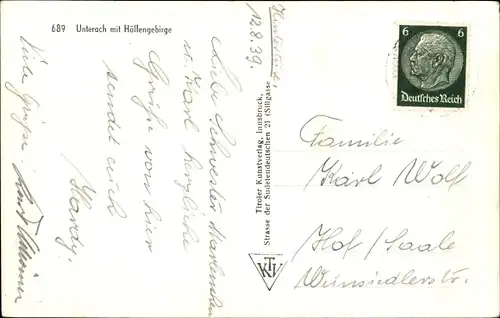 689 Unterach mit Höllengebirge
12.8.39.
Liebe Schwester
u. Karl herzliche
Grüße von hier
sendet euch
Hardy.
Viele Grüße
Tiroler Kunstverlag, Innsbruck,
Strasse der Sudetendeutschen 21 (Sillgasse
KTV
6 6
Deutsches Reich
Familie
Karl Wolf
Hof/Saale
Wunsiedlerstr.